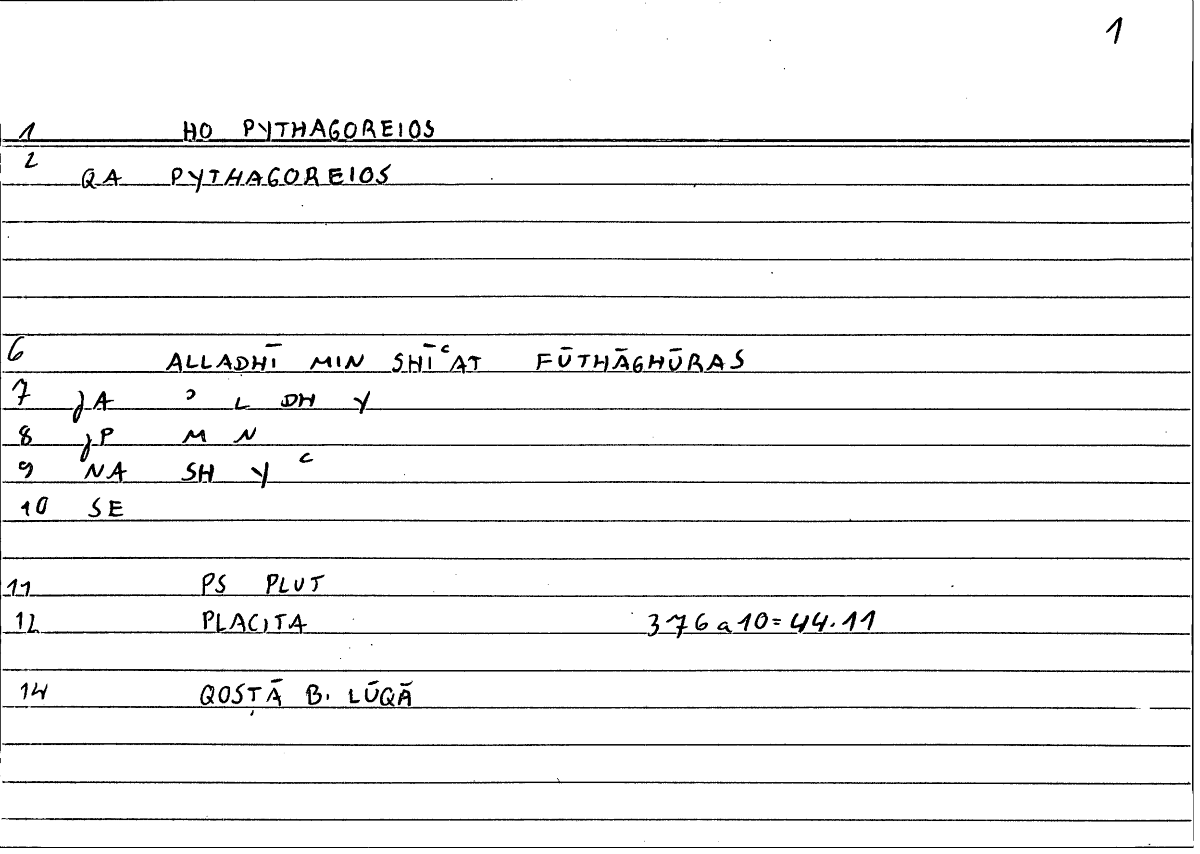 1
1 HO PYTHAGOREIOS
2 QA PYTHAGOREIOS
6 ALLADHĪ MIN SHĪʿAT FŪTHĀGHŪRAS
7 JA ʾ L DH Y
8 JP M N
9 NA SH Y ʿ
10 SE
11 PS PLUT
12 PLACITA 376a10=44.11
14 QOSṬĀ B. LŪQĀ